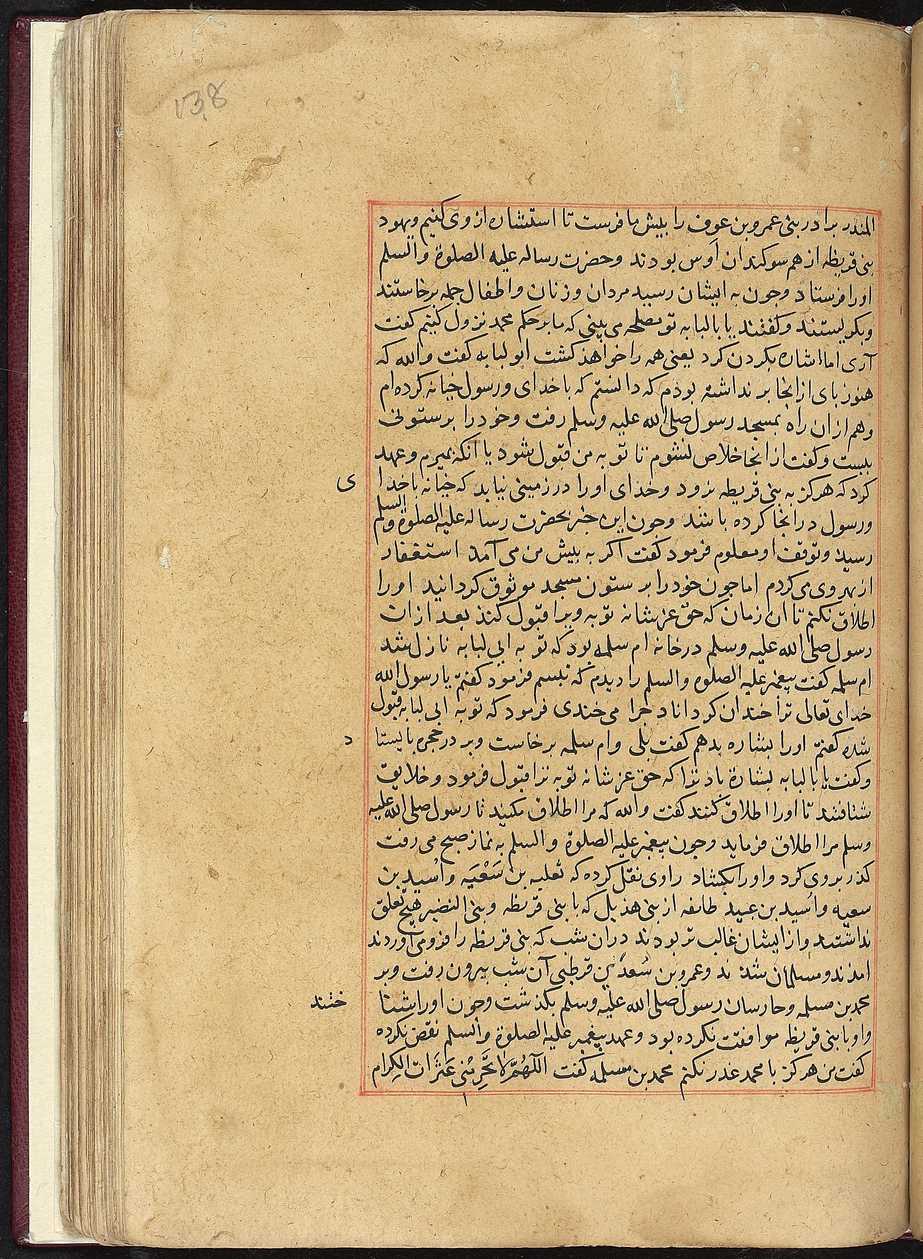 138
المنذر برادر بنی عمرو بن عوف را بیش ما فرست تا استشاره از وی کنیم و یهود
بنی قریظه از هم سوکندان اوس بودند و حضرت رساله علیه الصلوة والسلم
اورا فرستاد و جون به ایشان رسید مردان و زنان و اطفال جمله برخاستند
و بکریستند و کفتند یا بالبابه تو مصلحه می بینی که ما بر حکم محمد نزول کنیم کفت
آری اما اشاره بکردن کرد یعنی همه را خواهد کشت ابو لبابه کفت والله که
هنوز بای از انجا بر نداشته بودم که دانستم که با خدای و رسول خیانه کرده ام
وهم از ان راه بمسجد رسول صلی الله علیه وسلم رفت و خود را بر ستونی
ببست و کفت از انجا خلاص نشوم تا توبه من قبول شود یا انکه بمیرم و عهد
کرد که هرکز به بنی قریظه نرود و خدای اورا در زمینی نیابد که خیانه با خدا
ی
ورسول در انجا کرده باشد وجون این خبر بحضرت رساله علیه الصلوة والسلم
رسید و توقف او معلوم فرمود کفت اکر به بیش من می آمد استغفار
از بهر وی می کردم اما جون خود را بر ستون مسجد موثوق کردانید اورا
اطلاق نکنم تا ان زمان که حق عز شانه توبه ویرا قبول کند بعد ازان
رسول صلی الله علیه وسلم در خانه ام سلمه بود که توبه ابی لبابه نازل شد
ام سلمه کفت بیغمبر علیه الصلوه والسلم را دیدم که تبسم فرمود کفتم یا رسول الله
خدای تعالی ترا خندان کرداناد جرا می خندی فرمود که توبه ابی لبابه قبول
شده کفتم اورا بشاره بدهم کفت بلی وام سلمه برخاست وبر در حجره بایستا
د
وکفت یا بالبابه بشارة باد ترا که حق عز شانه توبه ترا قبول فرمود و خلایق
شتافتند تا اورا اطلاق کنند کفت والله که مرا اطلاق مکنید تا رسول صلی الله علیه
وسلم مرا اطلاق فرماید وجون بیغمبر علیه الصلوة والسلم به نماز صبح می رفت
کذر بروی کرد و اورا بکشاد راوی نقل کرده که ثعلبه بن سَعْیَه و اُسید بن
سعیه و اسید بن عبید طائفه از بنی هذیل که با بنی قریظه و بنی النضیر هیچ تعلق
نداشتند و از ایشان غالب تر بودند دران شب که بنی قریظه را فرومی آوردند
امدند و مسلمان شدند و عمرو بن سُعدی بن قرظبی آن شب بیرون رفت وبر
محمد بن مسلمه و حارسان رسول صلی الله علیه وسلم بکذشت وجون اورا بشنا
ختند
واو با بنی قریظه موافقت نکرده بود و عهد بیغمبر علیه الصلوة والسلم نقض نکرده
کفت من هرکز با محمد غدر نکنم محمد بن مسلمه کفت اللهُمَّ لا تَحْرِمْنی عَثَرات الکِرام